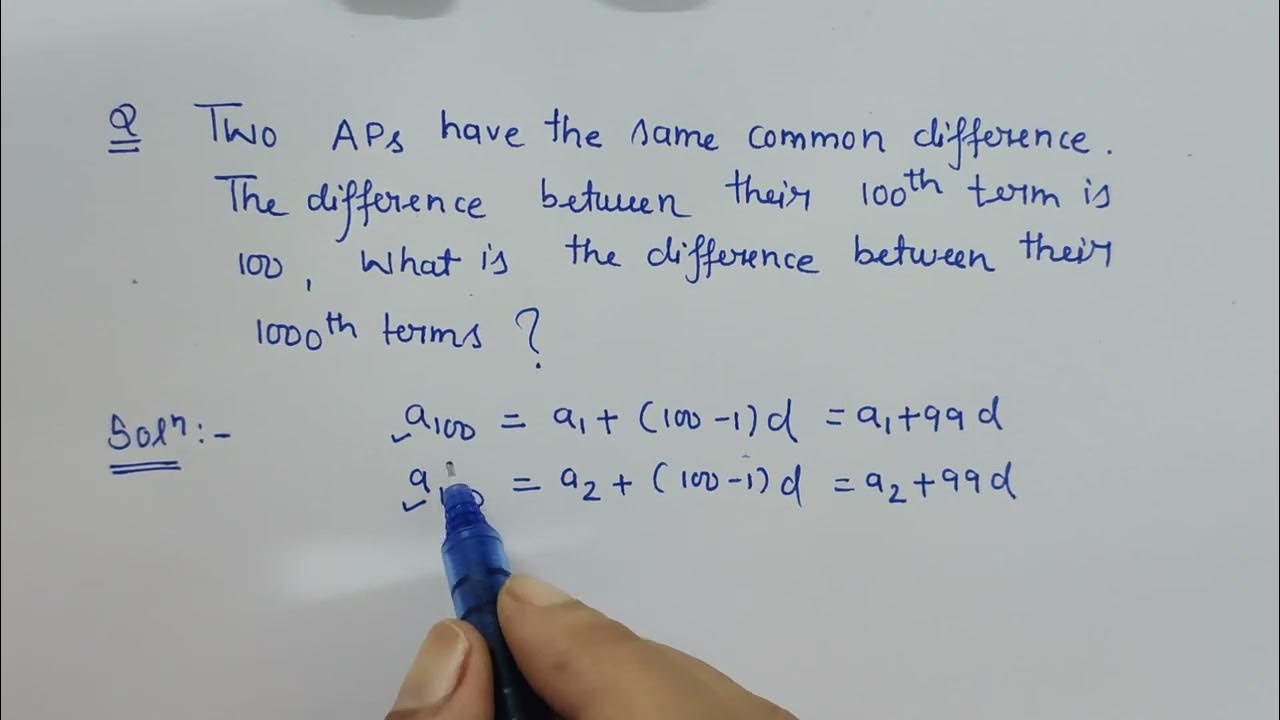 Q Two APs have the same common difference.
The difference between their 100th term is
100, What is the difference between their
1000th terms ?
Solⁿ:- a₁₀₀ = a₁ + (100 -1)d = a₁+99d
= a₂ + (100-1)d = a₂+99d